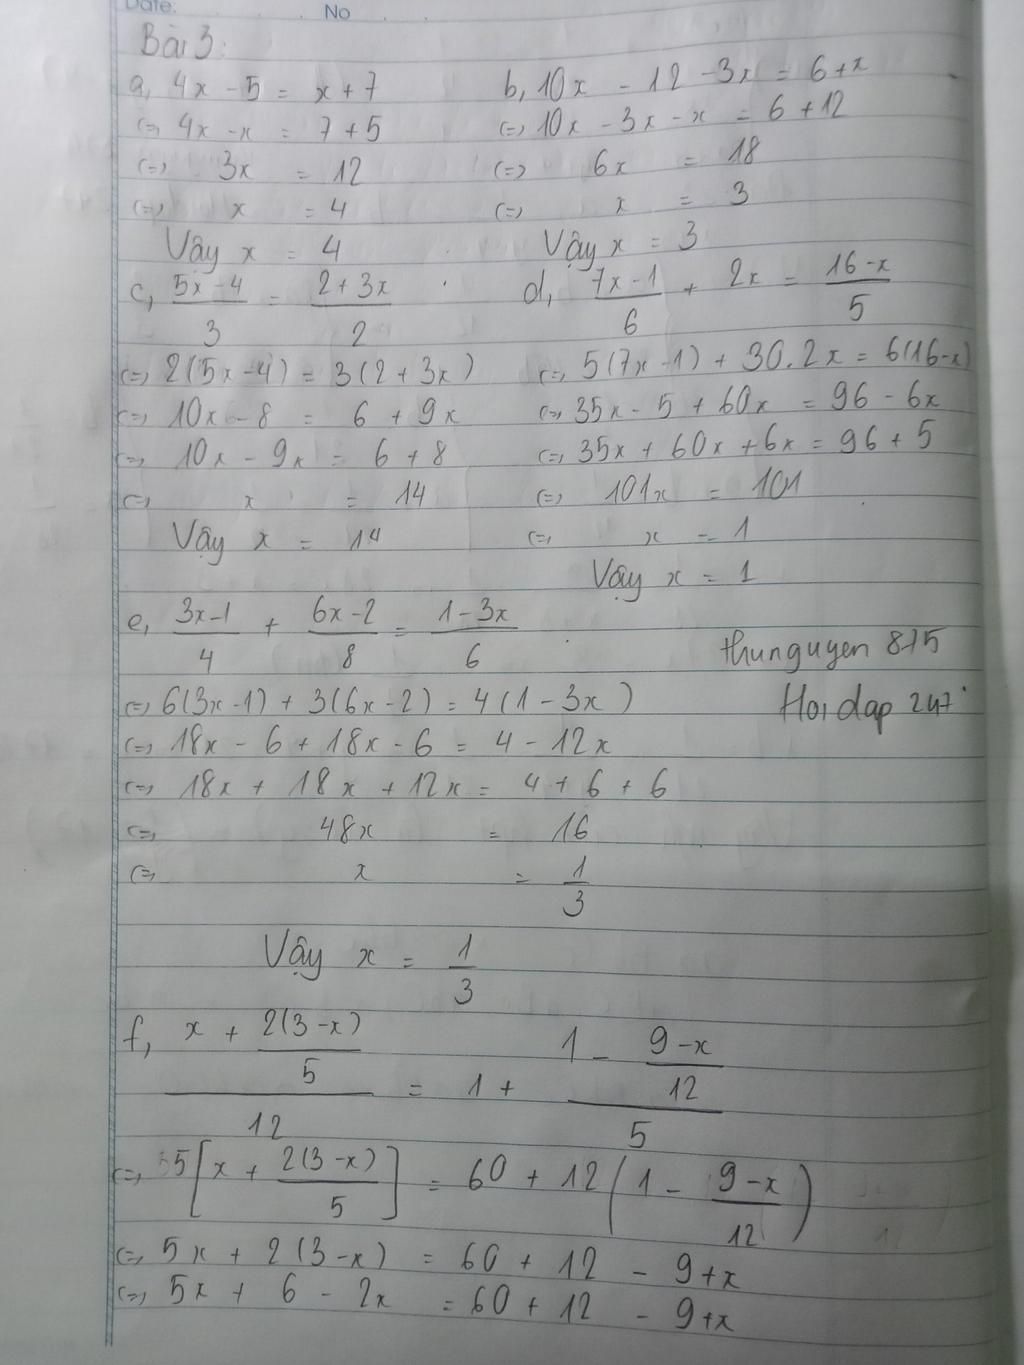 Date: No
Bài 3:
a, 4x - 5 = x + 7
(=) 4x - x = 7 + 5
(=) 3x = 12
(=) x = 4
Vậy x = 4
b, 10x - 12 - 3x = 6 + x
(=) 10x - 3x - x = 6 + 12
(=) 6x = 18
(=) x = 3
Vậy x = 3
c, (5x - 4)/3 = (2 + 3x)/2
(=) 2(5x - 4) = 3(2 + 3x)
(=) 10x - 8 = 6 + 9x
(=) 10x - 9x = 6 + 8
(=) x = 14
Vậy x = 14
d, (7x - 1)/6 + 2x = (16 - x)/5
(=) 5(7x - 1) + 30.2x = 6(16 - x)
(=) 35x - 5 + 60x = 96 - 6x
(=) 35x + 60x + 6x = 96 + 5
(=) 101x = 101
(=) x = 1
Vậy x = 1
e, (3x - 1)/4 + (6x - 2)/8 = (1 - 3x)/6
thunguyen 815
Hoidap 247
(=) 6(3x - 1) + 3(6x - 2) = 4(1 - 3x)
(=) 18x - 6 + 18x - 6 = 4 - 12x
(=) 18x + 18x + 12x = 4 + 6 + 6
(=) 48x = 16
(=) x = 1/3
Vậy x = 1/3
f, (x + 2(3 - x)/5)/12 = 1 + (1 - (9 - x)/12)/5
(=) 5[x + 2(3 - x)/5] = 60 + 12(1 - (9 - x)/12)
(=) 5x + 2(3 - x) = 60 + 12 - 9 + x
(=) 5x + 6 - 2x = 60 + 12 - 9 + x